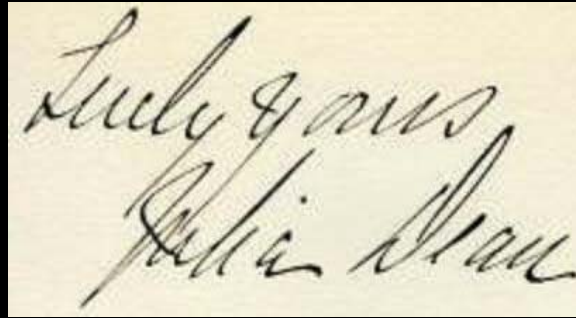 Truly yours
Julia Dean